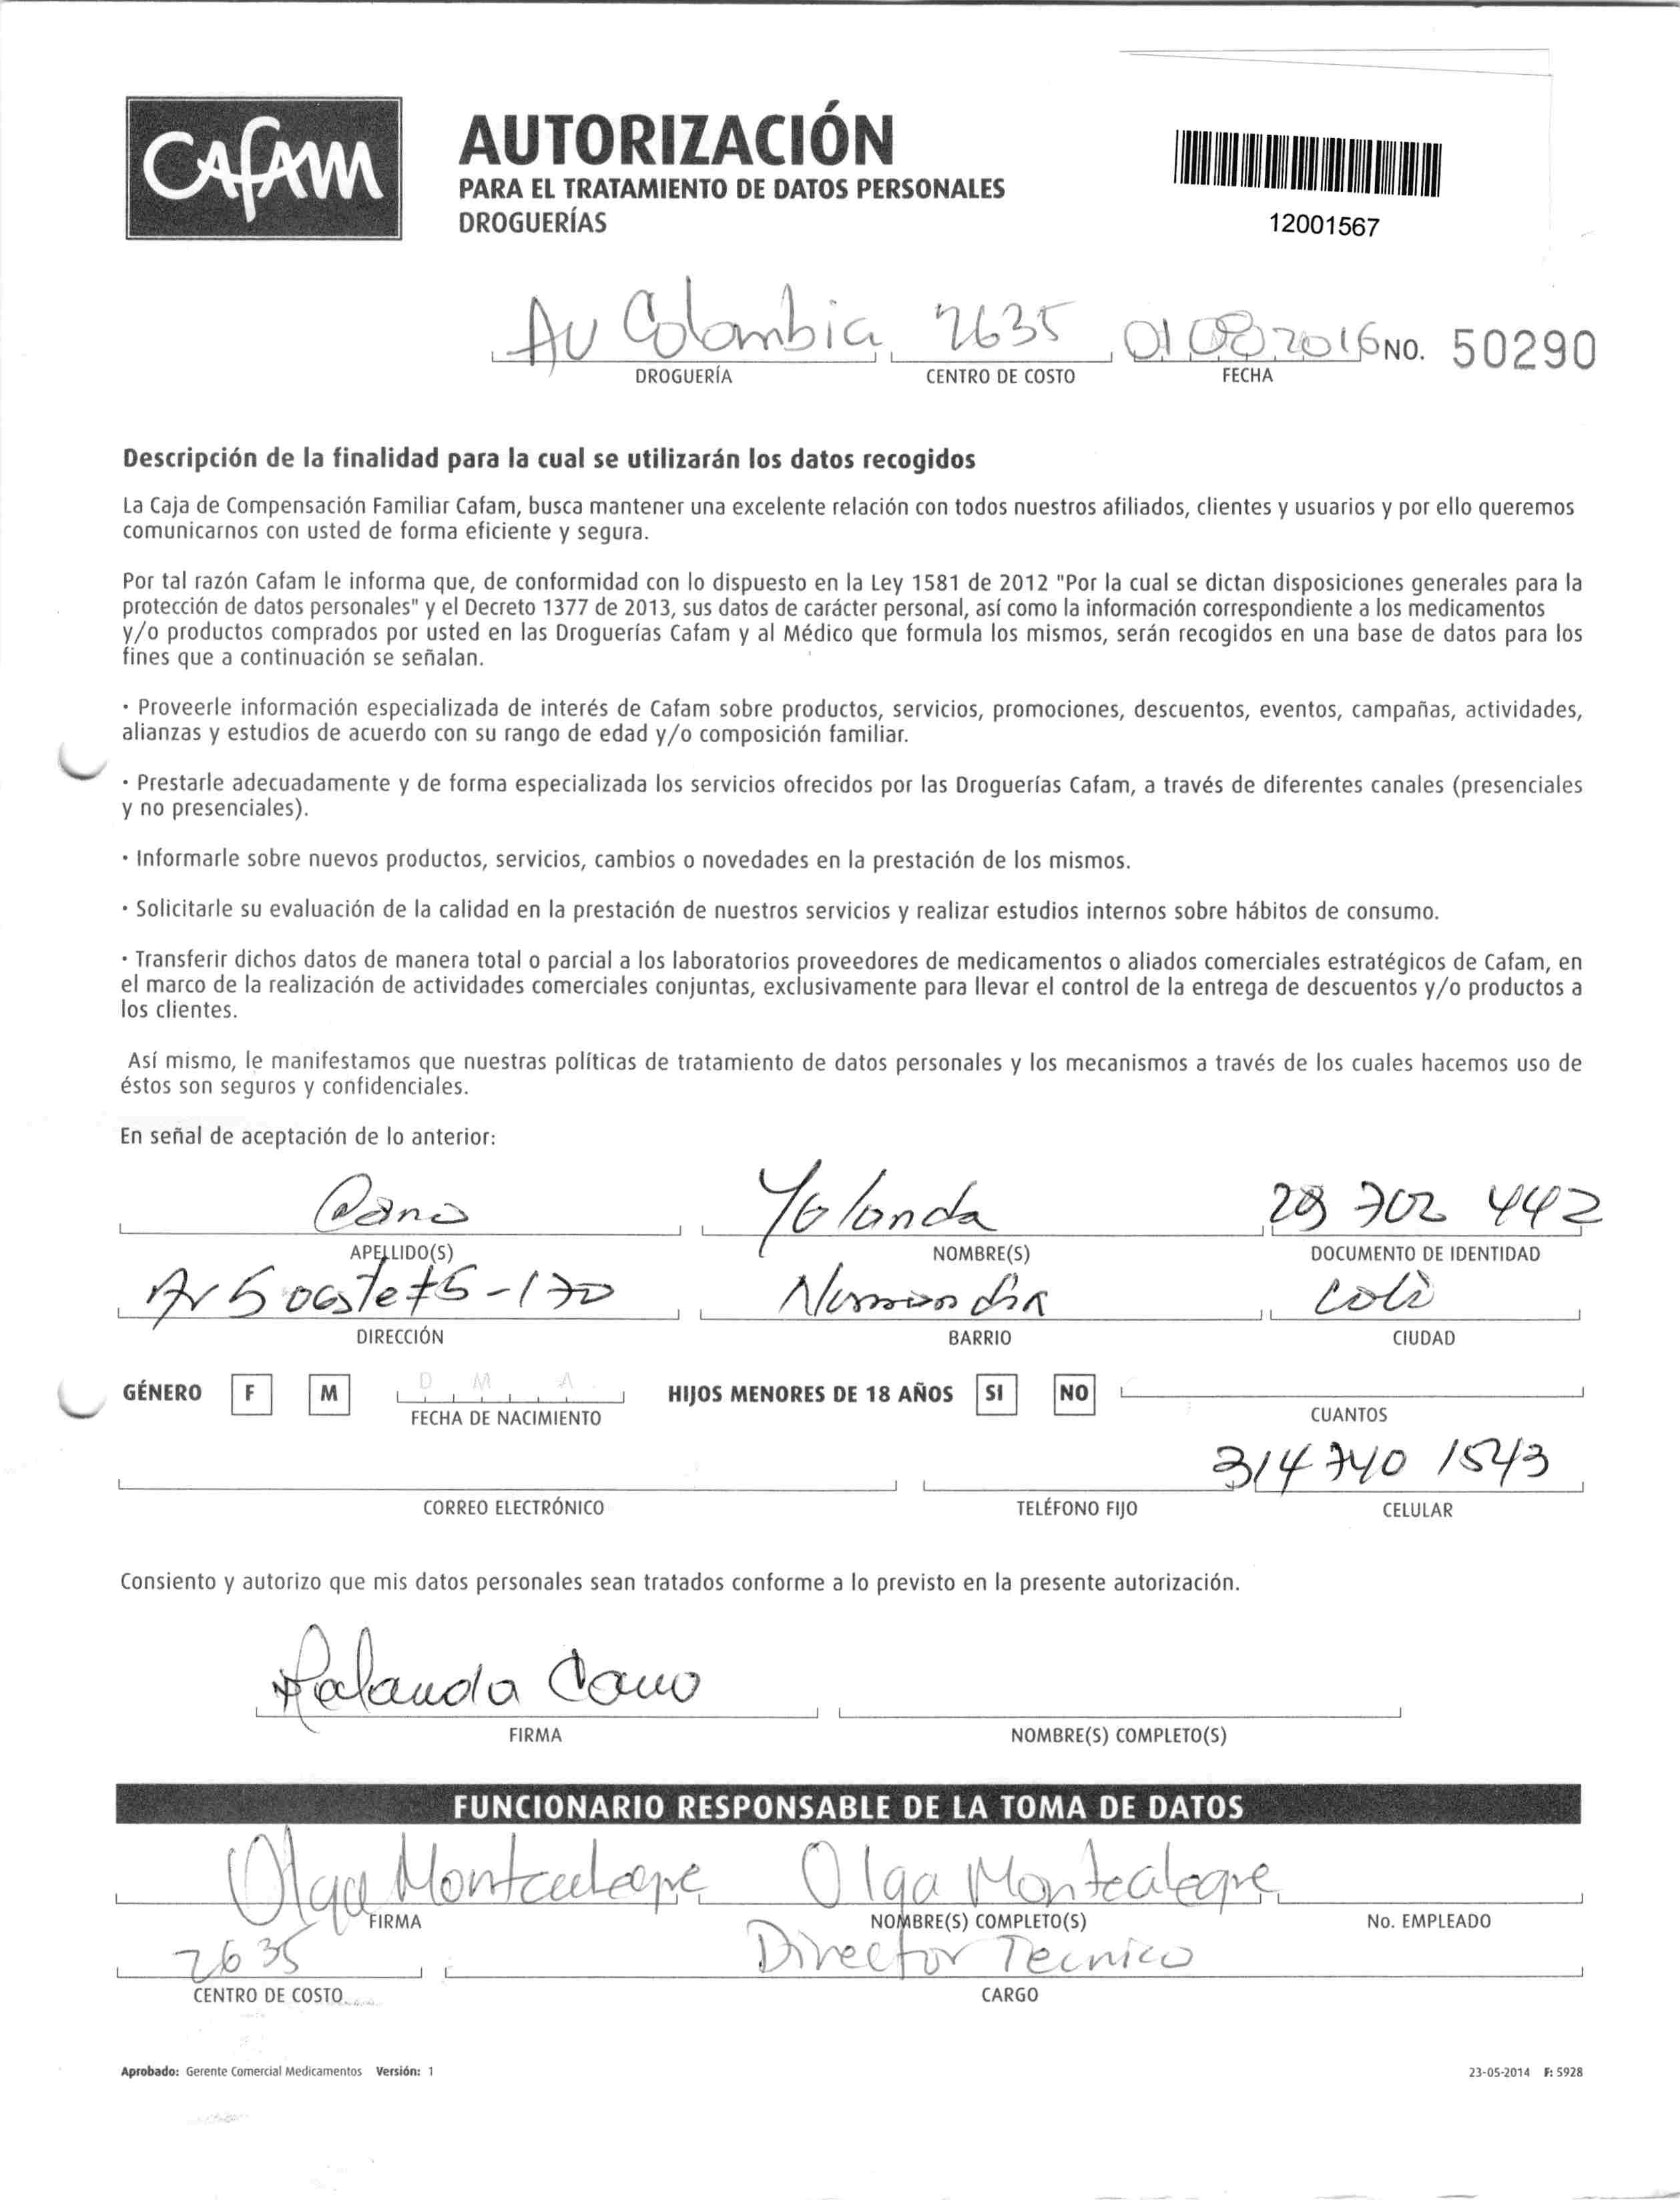 Cafam
AUTORIZACIÓN
PARA EL TRATAMIENTO DE DATOS PERSONALES
DROGUERÍAS
12001567
Av Colombia 2635 01 08 2016 NO. 50290
DROGUERÍA CENTRO DE COSTO FECHA
Descripción de la finalidad para la cual se utilizarán los datos recogidos
La Caja de Compensación Familiar Cafam, busca mantener una excelente relación con todos nuestros afiliados, clientes y usuarios y por ello queremos
comunicarnos con usted de forma eficiente y segura.
Por tal razón Cafam le informa que, de conformidad con lo dispuesto en la Ley 1581 de 2012 "Por la cual se dictan disposiciones generales para la
protección de datos personales" y el Decreto 1377 de 2013, sus datos de carácter personal, así como la información correspondiente a los medicamentos
y/o productos comprados por usted en las Droguerías Cafam y al Médico que formula los mismos, serán recogidos en una base de datos para los
fines que a continuación se señalan.
· Proveerle información especializada de interés de Cafam sobre productos, servicios, promociones, descuentos, eventos, campañas, actividades,
alianzas y estudios de acuerdo con su rango de edad y/o composición familiar.
· Prestarle adecuadamente y de forma especializada los servicios ofrecidos por las Droguerías Cafam, a través de diferentes canales (presenciales
y no presenciales).
· Informarle sobre nuevos productos, servicios, cambios o novedades en la prestación de los mismos.
· Solicitarle su evaluación de la calidad en la prestación de nuestros servicios y realizar estudios internos sobre hábitos de consumo.
· Transferir dichos datos de manera total o parcial a los laboratorios proveedores de medicamentos o aliados comerciales estratégicos de Cafam, en
el marco de la realización de actividades comerciales conjuntas, exclusivamente para llevar el control de la entrega de descuentos y/o productos a
los clientes.
Así mismo, le manifestamos que nuestras políticas de tratamiento de datos personales y los mecanismos a través de los cuales hacemos uso de
éstos son seguros y confidenciales.
En señal de aceptación de lo anterior:
Cano Yolanda 702 442
APELLIDO(S) NOMBRE(S) DOCUMENTO DE IDENTIDAD
Av 5 oeste -170 Cali
DIRECCIÓN BARRIO CIUDAD
GÉNERO F M D M A HIJOS MENORES DE 18 AÑOS SI NO
FECHA DE NACIMIENTO CUANTOS
314 740 1543
CORREO ELECTRÓNICO TELÉFONO FIJO CELULAR
Consiento y autorizo que mis datos personales sean tratados conforme a lo previsto en la presente autorización.
Yolanda Cano
FIRMA NOMBRE(S) COMPLETO(S)
FUNCIONARIO RESPONSABLE DE LA TOMA DE DATOS
Olga Montealegre Olga Montealegre
FIRMA NOMBRE(S) COMPLETO(S) No. EMPLEADO
2635 Director Tecnico
CENTRO DE COSTO CARGO
Aprobado: Gerente Comercial Medicamentos Versión: 1 23-05-2014 F: 5928